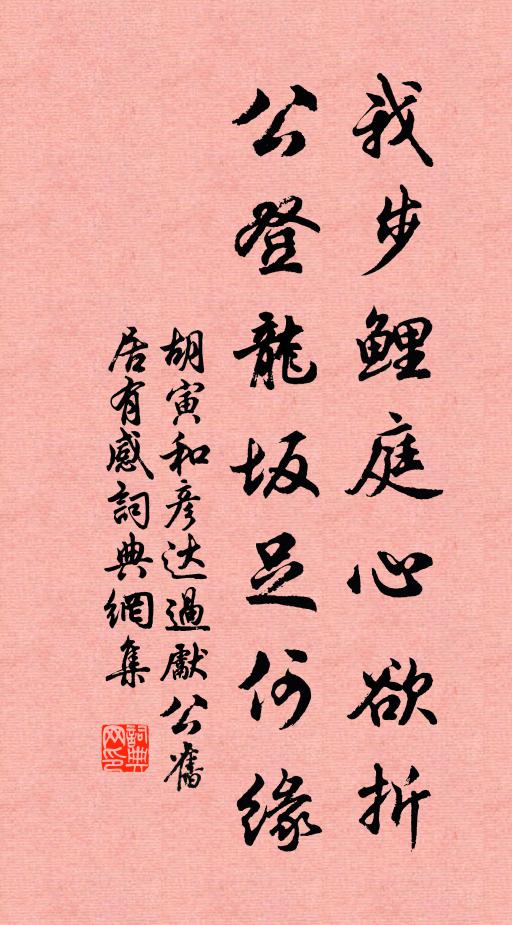 我步鲤庭心欲折
公登龍坂足何緣
胡寅和彦达過獻公舊
居有感詞典網集
詞典网印